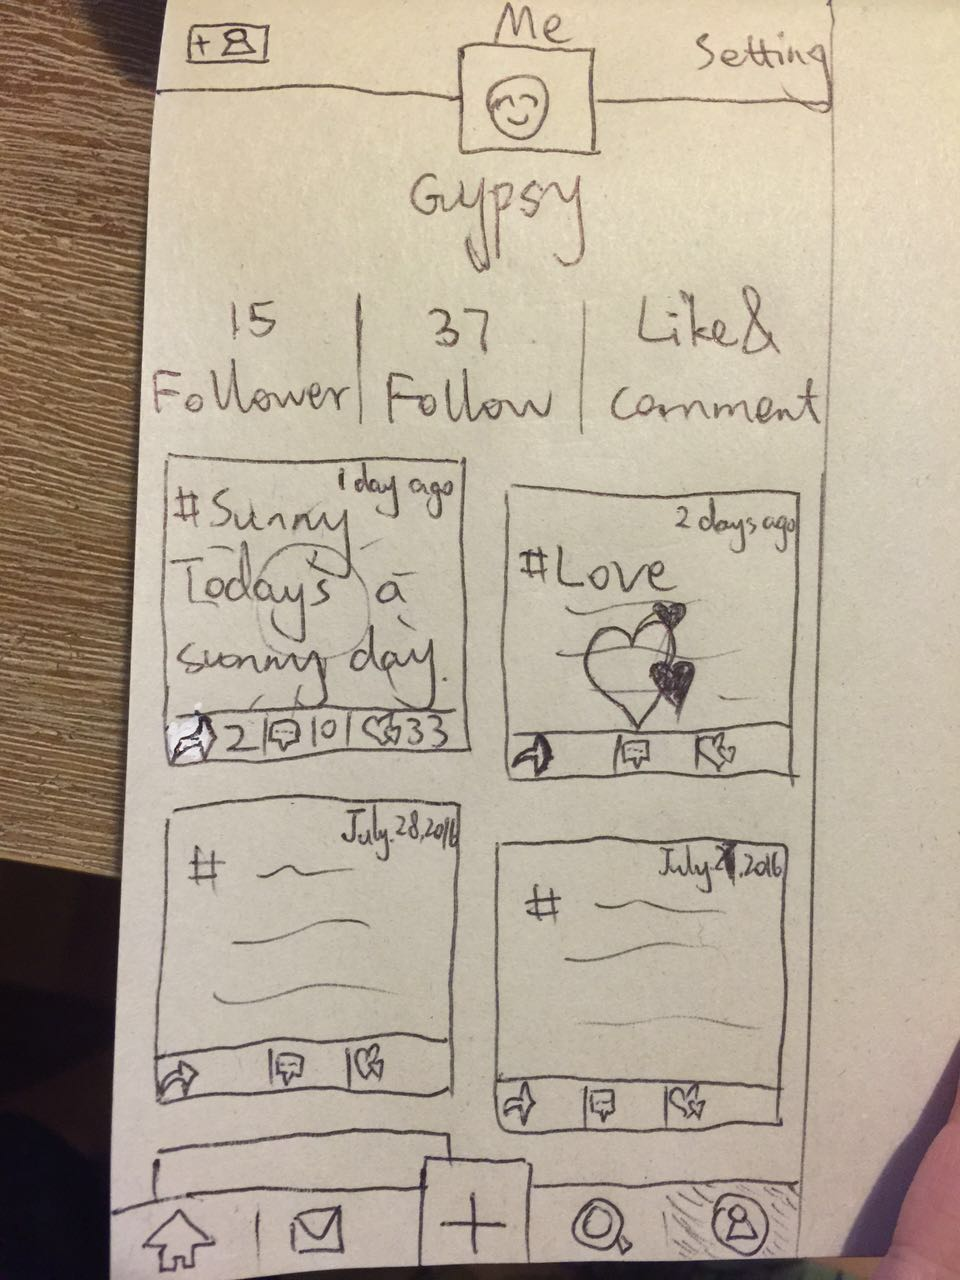 Me
Setting
Gypsy
15
Follower
37
Follow
Like&
comment
1 day ago
#Sunny
Today's a
sunny day.
2 10 33
2 days ago
#Love
July.28,2016
#
July. ,2016
#